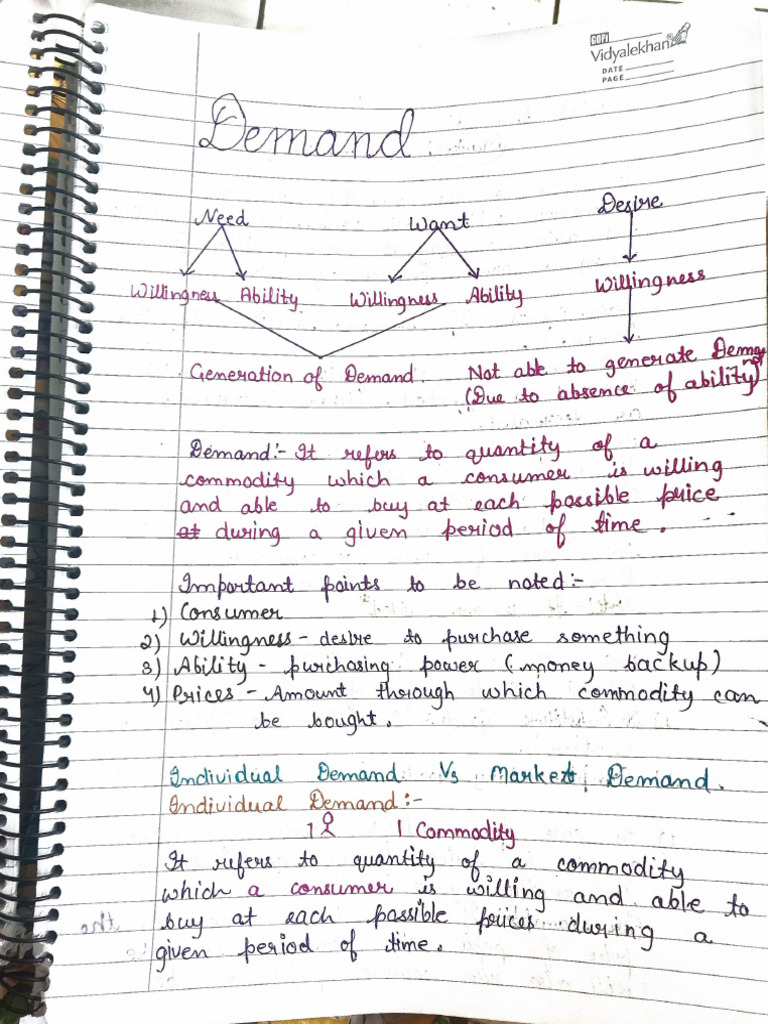 COPI
Vidyalekhan
DATE
PAGE
Demand
Need Want Desire
Willingness Ability Willingness Ability Willingness
Generation of Demand. Not able to generate Demand
(Due to absence of ability)
Demand:- It refers to quantity of a
commodity which a consumer is willing
and able to buy at each possible price
at during a given period of time.
Important points to be noted:-
1) Consumer
2) Willingness - desire to purchase something
3) Ability - purchasing power (money backup)
4) Prices - Amount through which commodity can
be bought.
Individual Demand Vs Market Demand.
Individual Demand:-
1 1 Commodity
It refers to quantity of a commodity
which a consumer is willing and able to
buy at each possible prices during a
given period of time.